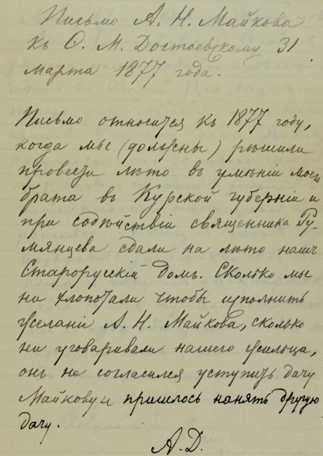 Письмо А. Н. Майкова
къ Ѳ. М. Достоевскому 31
марта 1877 года.
Письмо относится къ 1877 году,
когда мы (должны) рѣшили
провести лѣто въ имѣніи моего
брата въ Курской губерніи и
при содѣйствіи священника Ру-
мянцева сдали на лѣто нашъ
Старорусскій домъ. Сколько мы
ни хлопотали чтобы исполнить
желаніе А. Н. Майкова, сколько
ни уговаривали нашего жильца,
онъ не согласился уступить дачу
Майкову и пришлось нанять другую
дачу.
А.Д.